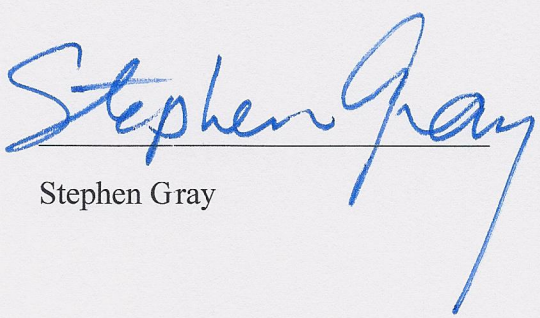 Stephen Gray
Stephen Gray